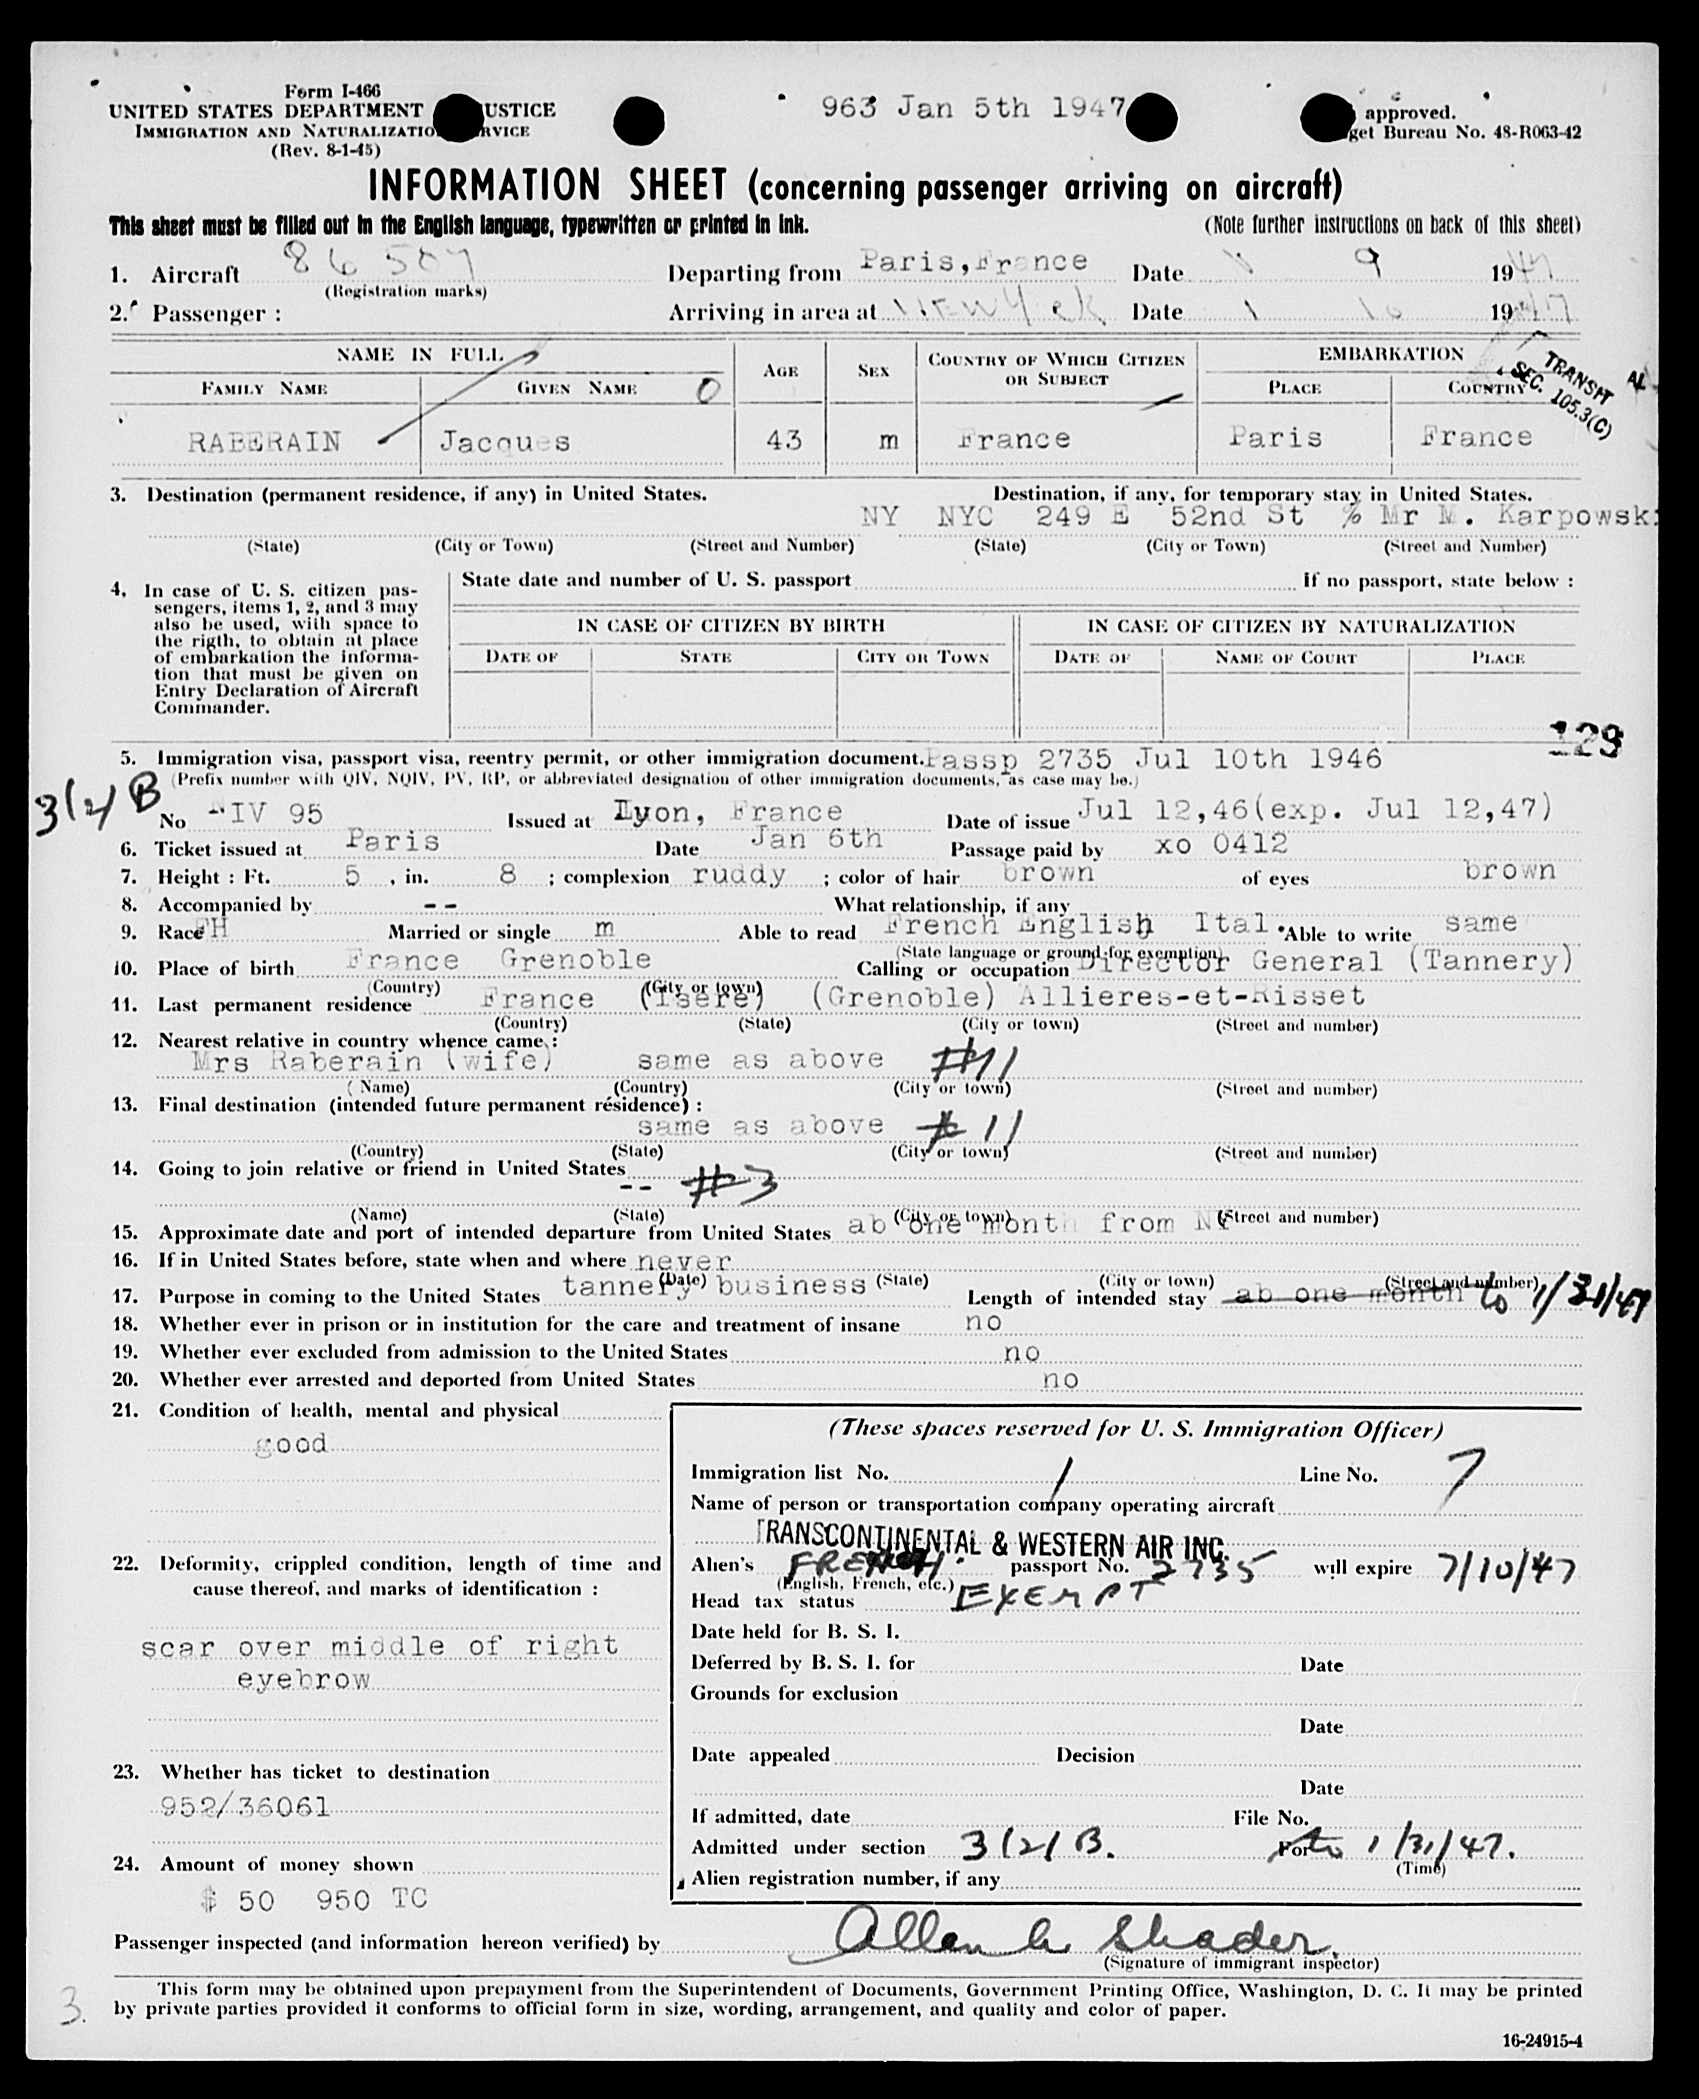 Form I-466
UNITED STATES DEPARTMENT USTICE
IMMIGRATION AND NATURALIZATIO RVICE
(Rev. 8-1-45)
963 Jan 5th 1947
approved.
get Bureau No. 48-R063-42
INFORMATION SHEET (concerning passenger arriving on aircraft)
This sheet must be filled out in the English language, typewritten or printed in ink. (Note further instructions on back of this sheet)
1. Aircraft 86507 Departing from Paris, France Date 1 9 1947
(Registration marks)
2. Passenger : Arriving in area at NEW York Date 1 10 1947
NAME IN FULL AGE SEX COUNTRY OF WHICH CITIZEN OR SUBJECT EMBARKATION
FAMILY NAME GIVEN NAME PLACE COUNTRY
TRANSIT
SEC. 105.3(C)
RABERAIN Jacques 43 m France Paris France
3. Destination (permanent residence, if any) in United States. Destination, if any, for temporary stay in United States.
NY NYC 249 E 52nd St % Mr M. Karpowski
(State) (City or Town) (Street and Number) (State) (City or Town) (Street and Number)
4. In case of U. S. citizen pas-
sengers, items 1, 2, and 3 may
also be used, with space to
the rigth, to obtain at place
of embarkation the informa-
tion that must be given on
Entry Declaration of Aircraft
Commander.
State date and number of U. S. passport If no passport, state below :
IN CASE OF CITIZEN BY BIRTH IN CASE OF CITIZEN BY NATURALIZATION
DATE OF STATE CITY OR TOWN DATE OF NAME OF COURT PLACE
129
5. Immigration visa, passport visa, reentry permit, or other immigration document. Passp 2735 Jul 10th 1946
(Prefix number with QIV, NQIV, PV, RP, or abbreviated designation of other immigration documents, as case may be.)
3(2) B
No IV 95 Issued at Lyon, France Date of issue Jul 12,46(exp. Jul 12,47)
6. Ticket issued at Paris Date Jan 6th Passage paid by xo 0412
7. Height : Ft. 5 , in. 8 ; complexion ruddy ; color of hair brown of eyes brown
8. Accompanied by -- What relationship, if any
9. Race FH Married or single m Able to read French English Ital. Able to write same
(State language or ground for exemption)
10. Place of birth France Grenoble Calling or occupation Director General (Tannery)
(Country) (City or town)
11. Last permanent residence France (Isere) (Grenoble) Allieres-et-Risset
(Country) (State) (City or town) (Street and number)
12. Nearest relative in country whence came :
Mrs Raberain (wife) same as above #11
(Name) (Country) (City or town) (Street and number)
13. Final destination (intended future permanent résidence) :
same as above # 11
(Country) (State) (City or town) (Street and number)
14. Going to join relative or friend in United States
-- #3
(Name) (State) (City or town) (Street and number)
15. Approximate date and port of intended departure from United States ab one month from NY
16. If in United States before, state when and where never
(Date) (State) (City or town) (Street and number)
17. Purpose in coming to the United States tannery business Length of intended stay ab one month to 1/31/47
18. Whether ever in prison or in institution for the care and treatment of insane no
19. Whether ever excluded from admission to the United States no
20. Whether ever arrested and deported from United States no
21. Condition of health, mental and physical
good
22. Deformity, crippled condition, length of time and
cause thereof, and marks of identification :
scar over middle of right
eyebrow
23. Whether has ticket to destination
952/36061
24. Amount of money shown
$ 50 950 TC
(These spaces reserved for U. S. Immigration Officer)
Immigration list No. 1 Line No. 7
Name of person or transportation company operating aircraft
TRANSCONTINENTAL & WESTERN AIR INC.
Alien's FRENCH passport No. 2735 will expire 7/10/47
(English, French, etc.)
Head tax status EXEMPT
Date held for B. S. I.
Deferred by B. S. I. for Date
Grounds for exclusion
Date
Date appealed Decision
Date
If admitted, date File No.
Admitted under section 3(2)B. For to 1/31/47.
(Time)
Alien registration number, if any
Passenger inspected (and information hereon verified) by Allen Shader
(Signature of immigrant inspector)
This form may be obtained upon prepayment from the Superintendent of Documents, Government Printing Office, Washington, D. C. It may be printed
by private parties provided it conforms to official form in size, wording, arrangement, and quality and color of paper.
3.
16-24915-4